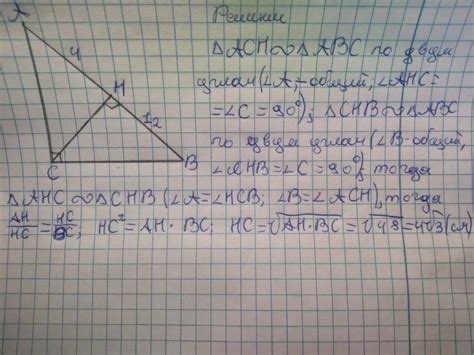 Решение
A
4
H
12
C
B
△ACH∽△ABC по двум
углам (∠A,-общий; ∠AHC=
=∠C=90°); △CHB∽△ABC
по двум углам (∠B-общий,
∠CHB=∠C=90°), тогда
△AHC∽△CHB (∠A=∠HCB; ∠B=∠ACH), тогда
AH/HC=HC/BC; HC²=AH·BC; HC=√AH·BC=√48=4√3(см)